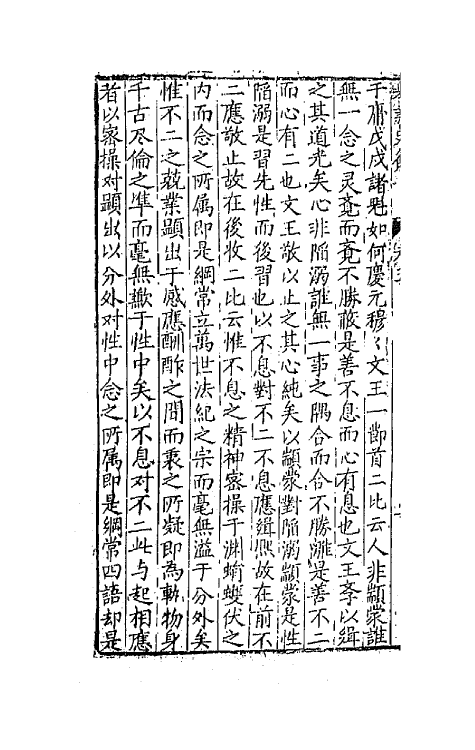 于戊戌諸如何慶元穆〻文王一節首二比云人非顓蒙誰
無一念之灵竟而竟不勝蔽是善不息而心有息也文王孳以緝
之其道光矣心非陷溺誰無一事之隅合而合不勝離是善不二
而心有二也文王敬以止之其心純矣以顓蒙對陷溺顓蒙是性
陷溺是習先性而後習也以不息對不二不息應緝熙故在前不
二應敬止故在後收二比云惟不息之精神密操于淵蜎蠖伏之
内而念之所属即是綱常立萬世法紀之宗而毫無溢于分外矣
惟不二之兢業顯出于感應酬酢之間而衷之所凝即為動物身
千古尽倫之準而毫無歉于性中矣以不息对不二此与起相應
者以密操对顯出以分外对性中念之所属即是綱常四語却是